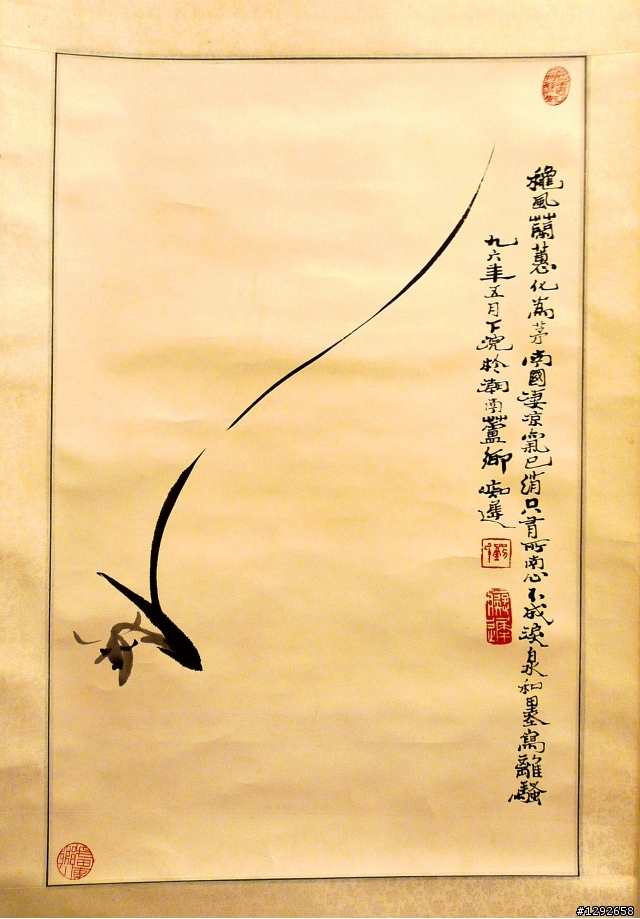 龝風蘭蕙化為茅南國凄凉氣已消只有所南心不改淚泉和墨寫離騷
九六年五月下浣於湖南蘆鄉痴
#1292658